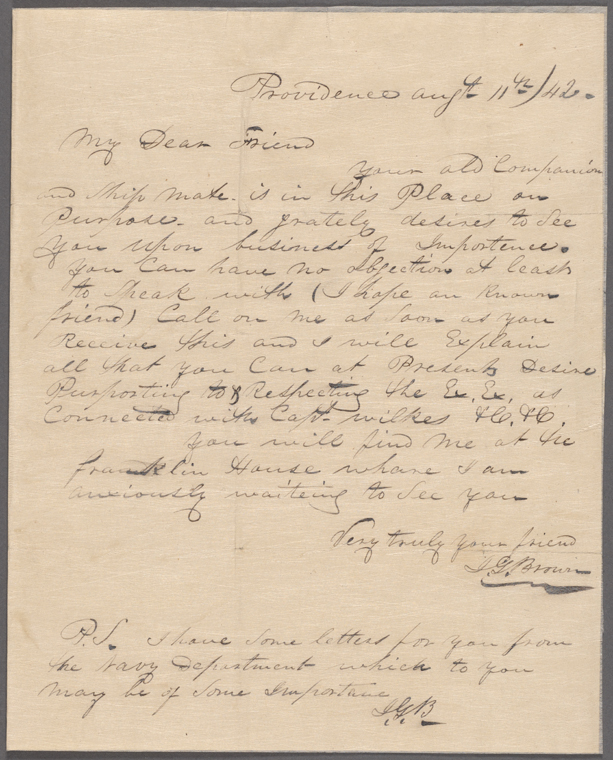 Providence augt 11th/42.
My Dear Friend
your old Companion
and Ship mate. is in this Place on
Purpose. and grately desires to See
you upon business of Importence.
you Can have no obgection at least
to Speak with (I hope an known
friend) Call on me as Soon as you
Receive this and I will Explain
all that you Can at Present Desire
Purporting to & Respecting the Ex. Ex. as
Connected with Capt. wilkes &C. &C.
you will find me at the
Franklin House whare I am
anxiously waiteing to See you
Very truly your friend
J.G. Brown
P.S. I have Some letters for you from
the Navy Department which to you
may be of Some Importance
J.G.B